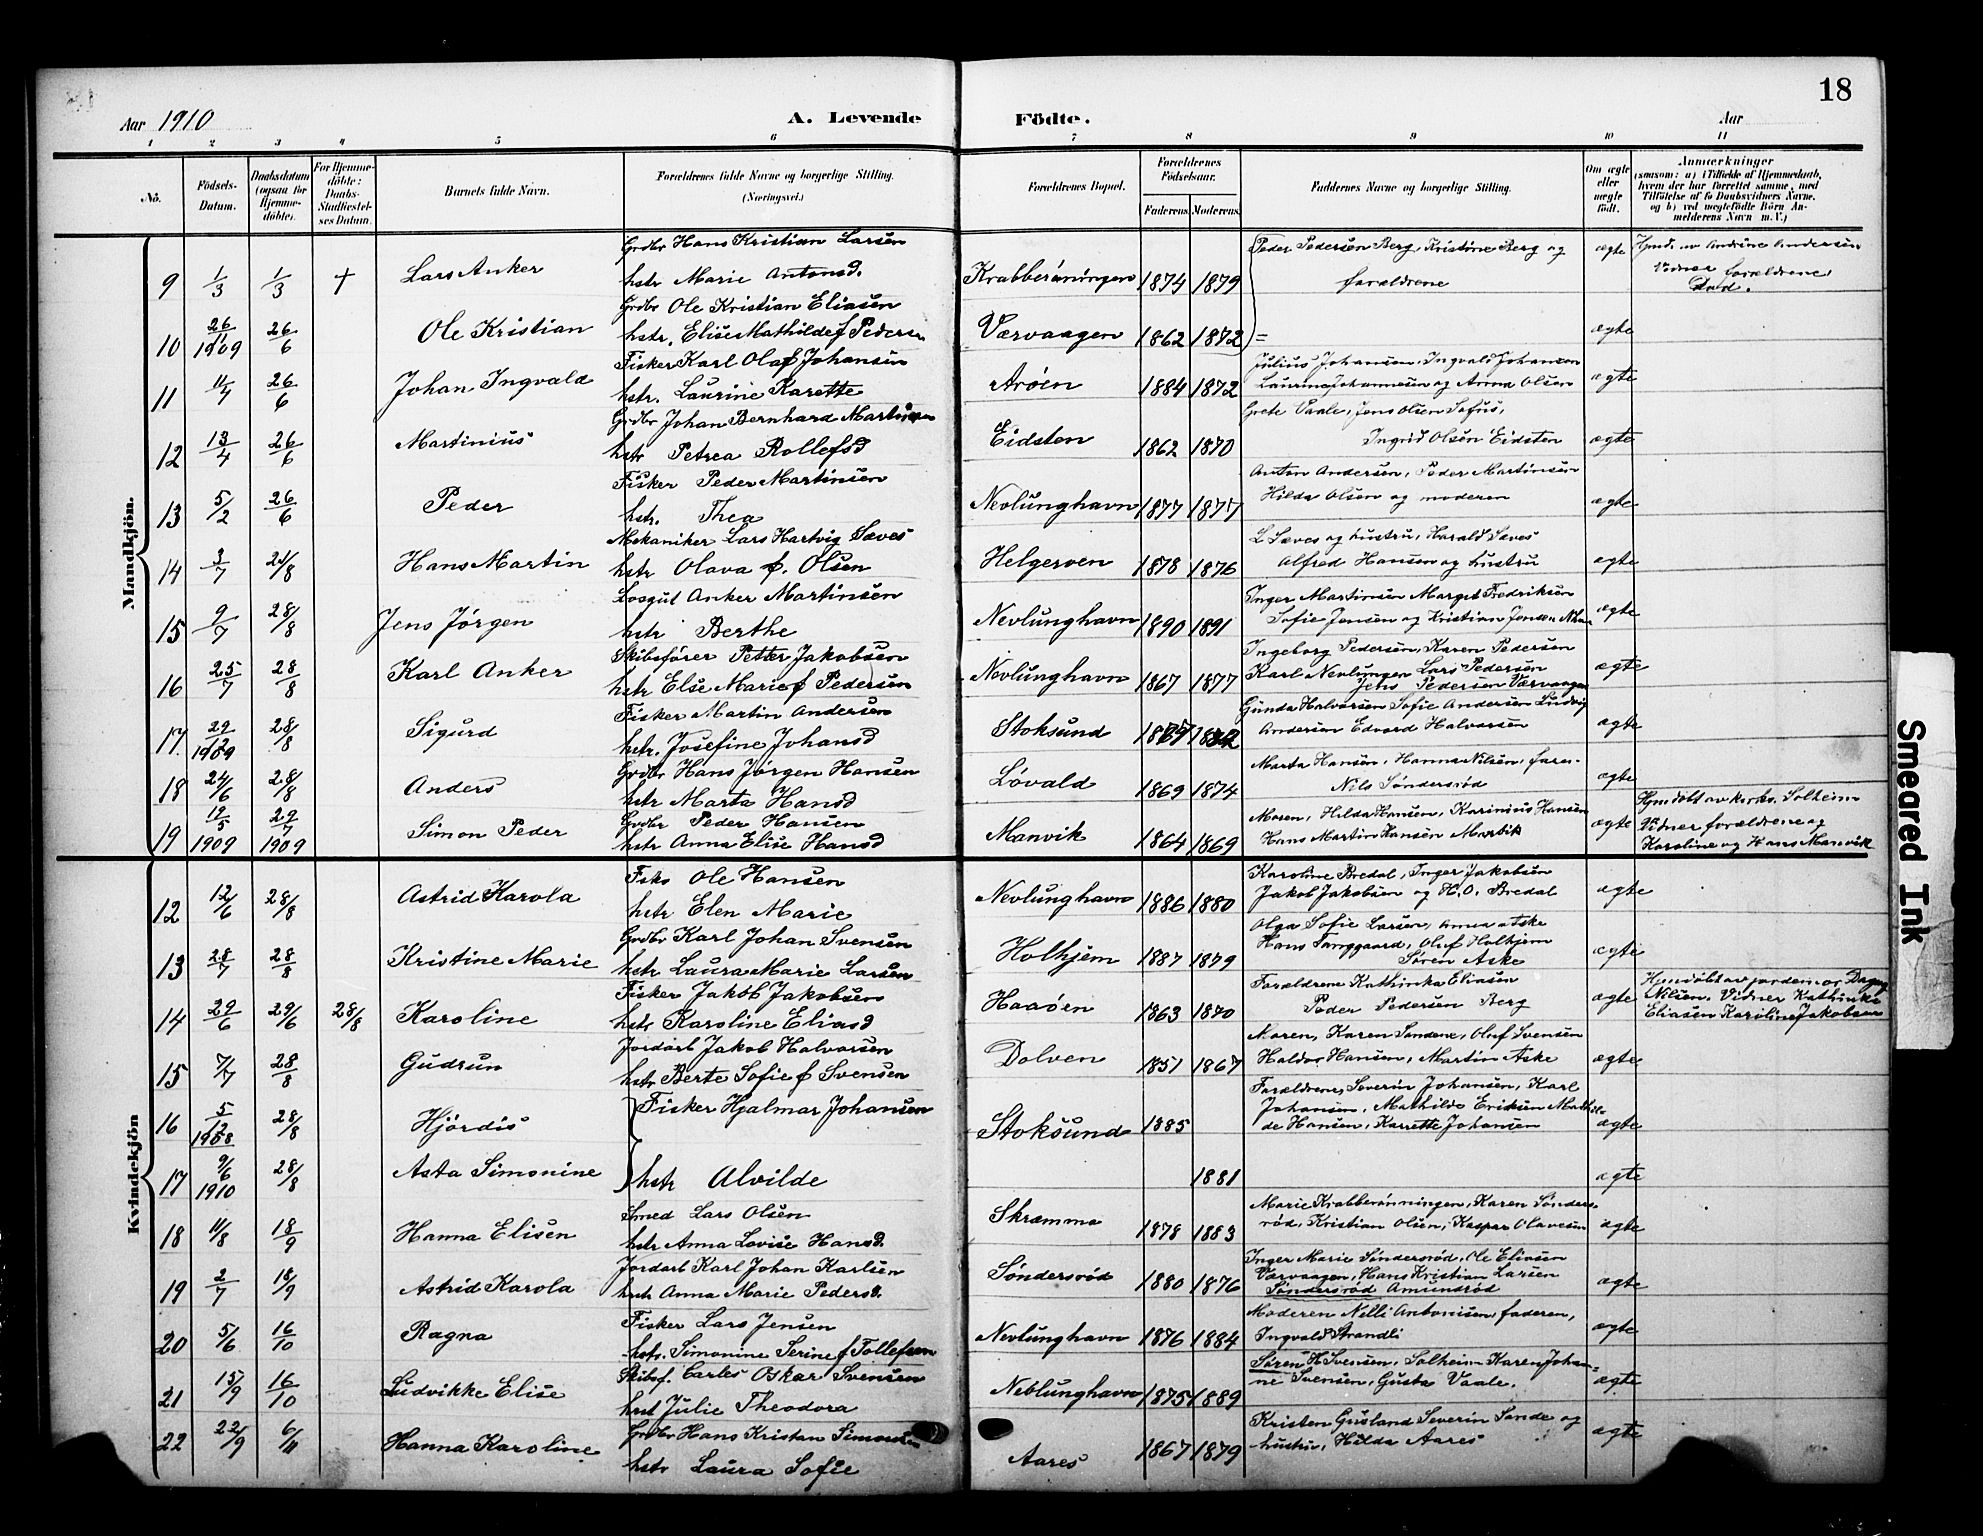 18
Aar 1910
A. Levende Födte.
Aar
1 2 3 4 5 6 7 8 9 10 11
No.
Födsels-Datum.
Daabsdatum (ogsaa for Hjemmedöbte).
For Hjemmedöbte: Daabs-Stadfæstelses Datum.
Barnets fulde Navn.
Forældrenes fulde Navne og borgerlige Stilling. (Næringsvei.)
Forældrenes Bopæl.
Forældrenes Födselsaar.
Faderens. Moderens.
Faddernes Navne og borgerlige Stilling.
Om ægte eller uægte födt.
Anmærkninger (saasom: a) i Tilfælde af Hjemmedaab, hvem der har forrettet samme, med Tilföielse af to Daabsvidners Navne. og b) ved uægtefödte Börn Anmelderens Navn m. V.)
Mandkjön.
9 1/3 1/3 + Lars Anker Grdbr Hans Kristian Larsen
hstr Marie Antonsd. Krabberøningen 1874 1879 Peder Pedersen Berg, Kristine Berg og
forældrene ægte Hjmd. av Andrine Andersen
Vidner forældrene.
Død.
10 26/11 1909 26/6 Ole Kristian Grdbr Ole Kristian Eliasen
hstr. Elise Mathilde f Pedersen Værvaagen 1862 1872 = ægte
11 11/4 26/6 Johan Ingvald Fisker Karl Olaf Johansen
hstr. Laurine Karette Arøen 1884 1872 Julius Johansen, Ingvald Johansen
Laurine Johannesen og Anna Olsen ægte
12 13/4 26/6 Martinius Grdbr Johan Bernhard Martinsen
hstr Petrea Rollefsd Eidsten 1862 1870 Grete Vaale, Jens Olsen Sofus,
Ingrid Olsen Eidsten ægte
13 5/2 26/6 Peder Fisker Peder Martinsen
hstr. Thea Nevlunghavn 1877 1877 Anton Andersen, Peder Martinsen
Hilda Olsen og moderen ægte
14 3/7 21/8 Hans Martin Mekaniker Lars Hartvig Sæves
hstr Olava f. Olsen Helgerven 1878 1876 L Sæves og hustru, Harald Sæves
Alfred Hansen og hustru ægte
15 9/7 28/8 Jens Jørgen Losgut Anker Martinsen
hstr Berthe Nevlunghavn 1890 1891 Inger Martinsen Marget Fredriksen
Sofie Jensen og Kristian Jensen ægte
16 25/7 28/8 Karl Anker Skibsfører Petter Jakobsen
hstr Else Marie f Pedersen Nevlunghavn 1867 1877 Ingeborg Pedersen, Karen Pedersen
Karl Nevlungen Lars Pedersen
Jens Pedersen Værvaagen ægte
17. 29/12 1909 28/8 Sigurd Fisker Martin Andersen
hstr. Josefine Johansd Stoksund Gunda Halvorsen Sofie Andersen Ludvig
Andersen Edvard Halvorsen ægte
18 24/6 28/8 Anders Grdbr Hans Jørgen Hansen
hstr Marta Hansd Løvald 1869 1874 Marta Hansen, Hanna Nilsen, fare-
Nils Søndersrød ægte
19 12/5 1909 29/7 1909 Simon Peder Grdbr Peder Hansen
hstr Anna Elise Hansd Manvik 1864 1869 Moren, Hilda Hansen, Karinius Hansen
Hans Martin Hansen Manvik ægte Hjmdøbt av kirks. Solheim
Vidner forældrene og
Karoline og Hans Manvik
Kvindekjön
12 12/6 28/8 Astrid Karola Fisks Ole Hansen
hstr Elen Marie Nevlunghavn 1886 1880 Karoline Bredal, Inger Jakobsen
Jakob Jakobsen og H. O. Bredal ægte
13 28/7 28/8 Kristine Marie Grdbr Karl Johan Svensen
hstr Laura Marie Larsen Holhjem 1887 1879 Olga Sofie Larsen, Anna Aske
Hans Tanggaard, Oluf Holhjem
Søren Aske ægte
14 29/6 29/6 28/8 Karoline Fisker Jakob Jakobsen
hstr Karoline Eliasd Haaøen 1863 1870 Forældrene Kathinka Eliasen
Peder Pedersen Berg ægte Hjmdøbt av jordemor Dagny
Nilsen. Vidner Kathinka
Eliasen Karoline Jakobsen
15 7/7 28/8 Gudrun Jordarb Jakob Halvorsen
hstr Berte Sofie f Svensen Dolven 1857 1867 Maren, Karen Sandene, Oluf Svensen
Haldor Hansen, Martin Aske ægte
16 5/12 1908 28/8 Hjördis Fisker Hjalmar Johansen Stoksund 1885 Forældrene, Severin Johansen, Karl
Johansen, Mathilde Eriksen Mathil-
de Hansen, Karrette Johansen ægte
17 9/6 1910 28/8 Asta Simonine hstr Alvilde 1881 ægte
18 11/8 18/9 Hanna Elisen Smed Lars Olsen
hstr Anna Lovise Hansd. Skramma 1878 1883 Marie Krabberønningen, Karen Sønders-
rød, Kristian Olsen, Kaspar Olavesen ægte
19 2/7 18/9 Astrid Karola Jordarb Karl Johan Karlsen
hstr Anna Marie Pedersd. Søndersrød 1880 1876 Inger Marie Søndersrød, Ole Eliasen
Værvaagen, Hans Kristian Larsen
Søndersrød Amundrød ægte
20 5/6 16/10 Ragna Fisker Lars Jensen
hstr. Simonine Serine f Tollefsen Nevlunghavn 1876 1884 Moderen Nilli Antonisen, faderen,
Ingvald Strandli ægte
21 15/9 16/10 Ludvikke Elise Skibsf. Carles Oskar Svensen
hstr Julie Theodora Neblunghavn 1875 1889 Søren H Svensen, Solheim Karen Johan-
ne Svensen, Gusta Vaale. ægte
22 22/9 6/11 Hanna Karoline Grdbr Hans Kristan Simonsen
hstr Laura Sofie Aares 1867 1879 Kristen Gusland Severin Sande og
hustru, Hilda Aares ægte
Smeared Ink